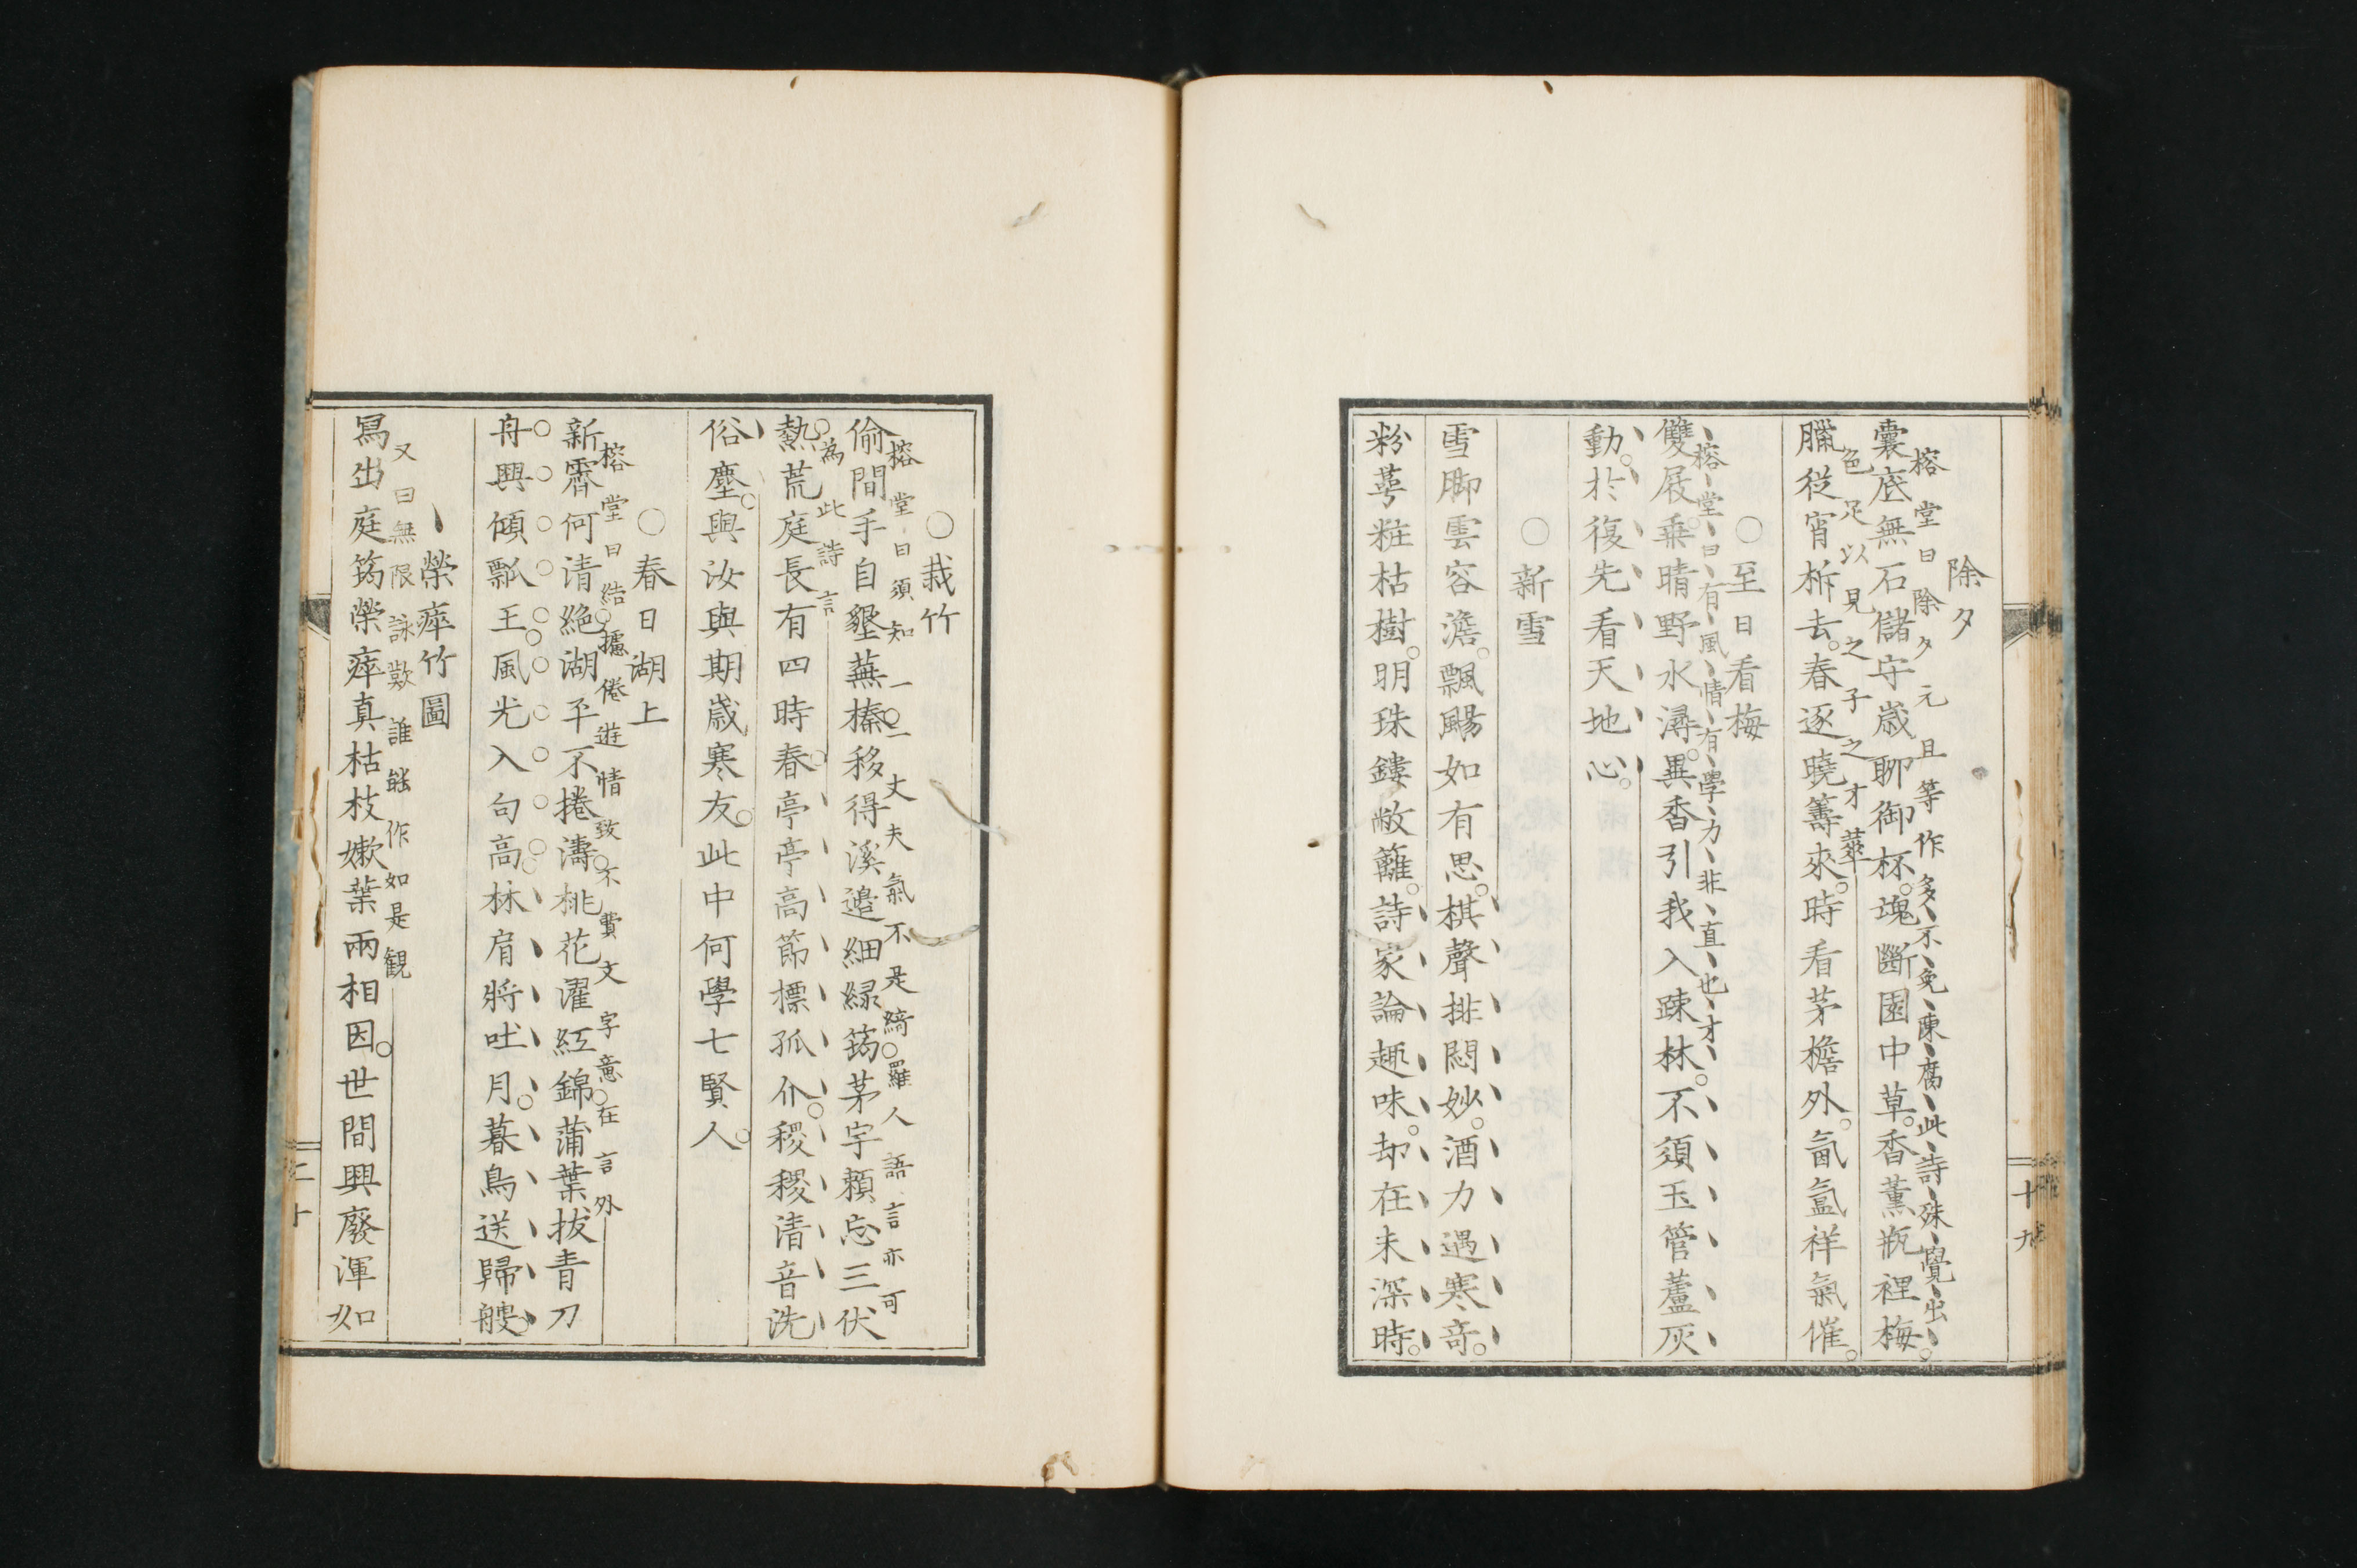 除夕
榕堂曰除夕元旦等作多不免陳腐此詩殊覺出
囊底無石儲守歳聊御杯塊斷園中草香薫瓶裡梅
色足以見之子之才華
臘從宵柝去春逐曉籌來時看茅檐外氤氳祥氣催
○至日看梅
榕堂曰有風情有學力非直也才
雙屐乗晴野水潯異香引我入踈林不須玉管蘆灰
動於復先看天地心
○新雪
雪脚雲容澹飄颺如有思棋聲排悶妙酒力遇寒奇
粉萼粧枯樹明珠鏤敝籬詩家論趣味却在未深時
十九
○栽竹
榕堂曰須知一二丈夫氣不是綺羅人語言亦可
偷間手自墾蕪榛移得溪邉細緑筠茅宇頼忘三伏
為此詩言
熱荒庭長有四時春亭亭高節標孤介稷稷清音洗
俗塵與汝與期歳寒友此中何學七賢人
○春日湖上
榕堂曰結攄倦遊情致不費文字意在言外
新霽何清絶湖平不捲濤桃花濯紅錦蒲葉拔青刀
舟興傾瓢王風光入句高林肩將吐月暮鳥送歸艘
榮瘁竹圖
又曰無限詠歎誰能作如是観
冩出庭筠榮瘁真枯枝嫩葉兩相因世間興廢渾如
二十